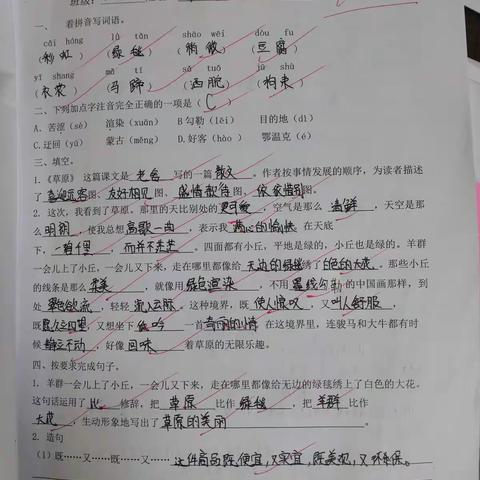 班级:
一、 看拼音写词语。
cǎi hóng lǜ tǎn shāo wēi dòu fu
(彩虹) (绿毯) (稍微) (豆腐)
yī shang mǎ tí sǎ tuō jū shù
(衣裳) (马蹄) (洒脱) (拘束)
二、下列加点字注音完全正确的一项是( C )
A. 苦涩(sè) 渲染(xuān) B 勾勒(lēi) 目的地(dì)
C.迂回(yū) 蒙古(měng) D.好客(hào ) 鄂温克(è)
三、填空。
1.《草原》 这篇课文是 老舍 写的一篇 散文 。作者按事情发展的顺序,为读者描述
了 喜迎远客 图、 友好相见 图、 盛情款待 图、 依依惜别 图。
2. 这次,我看到了草原。那里的天比别处的 更可爱 ,空气是那么 清鲜 ,天空是那
么 明朗 ,使我总想 高歌一曲 ,表示我 满心的愉快 在天底
下, 一碧千里 , 而并不茫茫 。四面都有小丘,平地是绿的,小丘也是绿的。羊群
一会儿上了小丘,一会儿又下来,走在哪里都像给 无边的绿毯 绣了 白色的大花 。那些小丘
的线条是那么 柔美 ,就像用 绿色渲染 ,不用 墨线勾勒 的中国画那样,到
处 翠色欲流 ,轻轻 流入云际 。这种境界,既 使人惊叹 ,又 叫人舒服 ,
既 愿久立四望 又想坐下 低吟 一首 奇丽的小诗 在这境界里,连骏马和大牛都有时
候 静立不动 ,好像 回味 着草原的无限乐趣。
四、按要求完成句子。
1. 羊群一会儿上了小丘,一会儿又下来,走在哪里都像给无边的绿毯绣上了白色的大花。
这句话运用了 比 修辞,把 草原 比作 绿毯 ,把 羊群 比作
大花 ,生动形象地写出了 草原的美丽
2. 造句
(1)既……又……既……又…… 这件商品既便宜,又实宜,既美观,又环保。